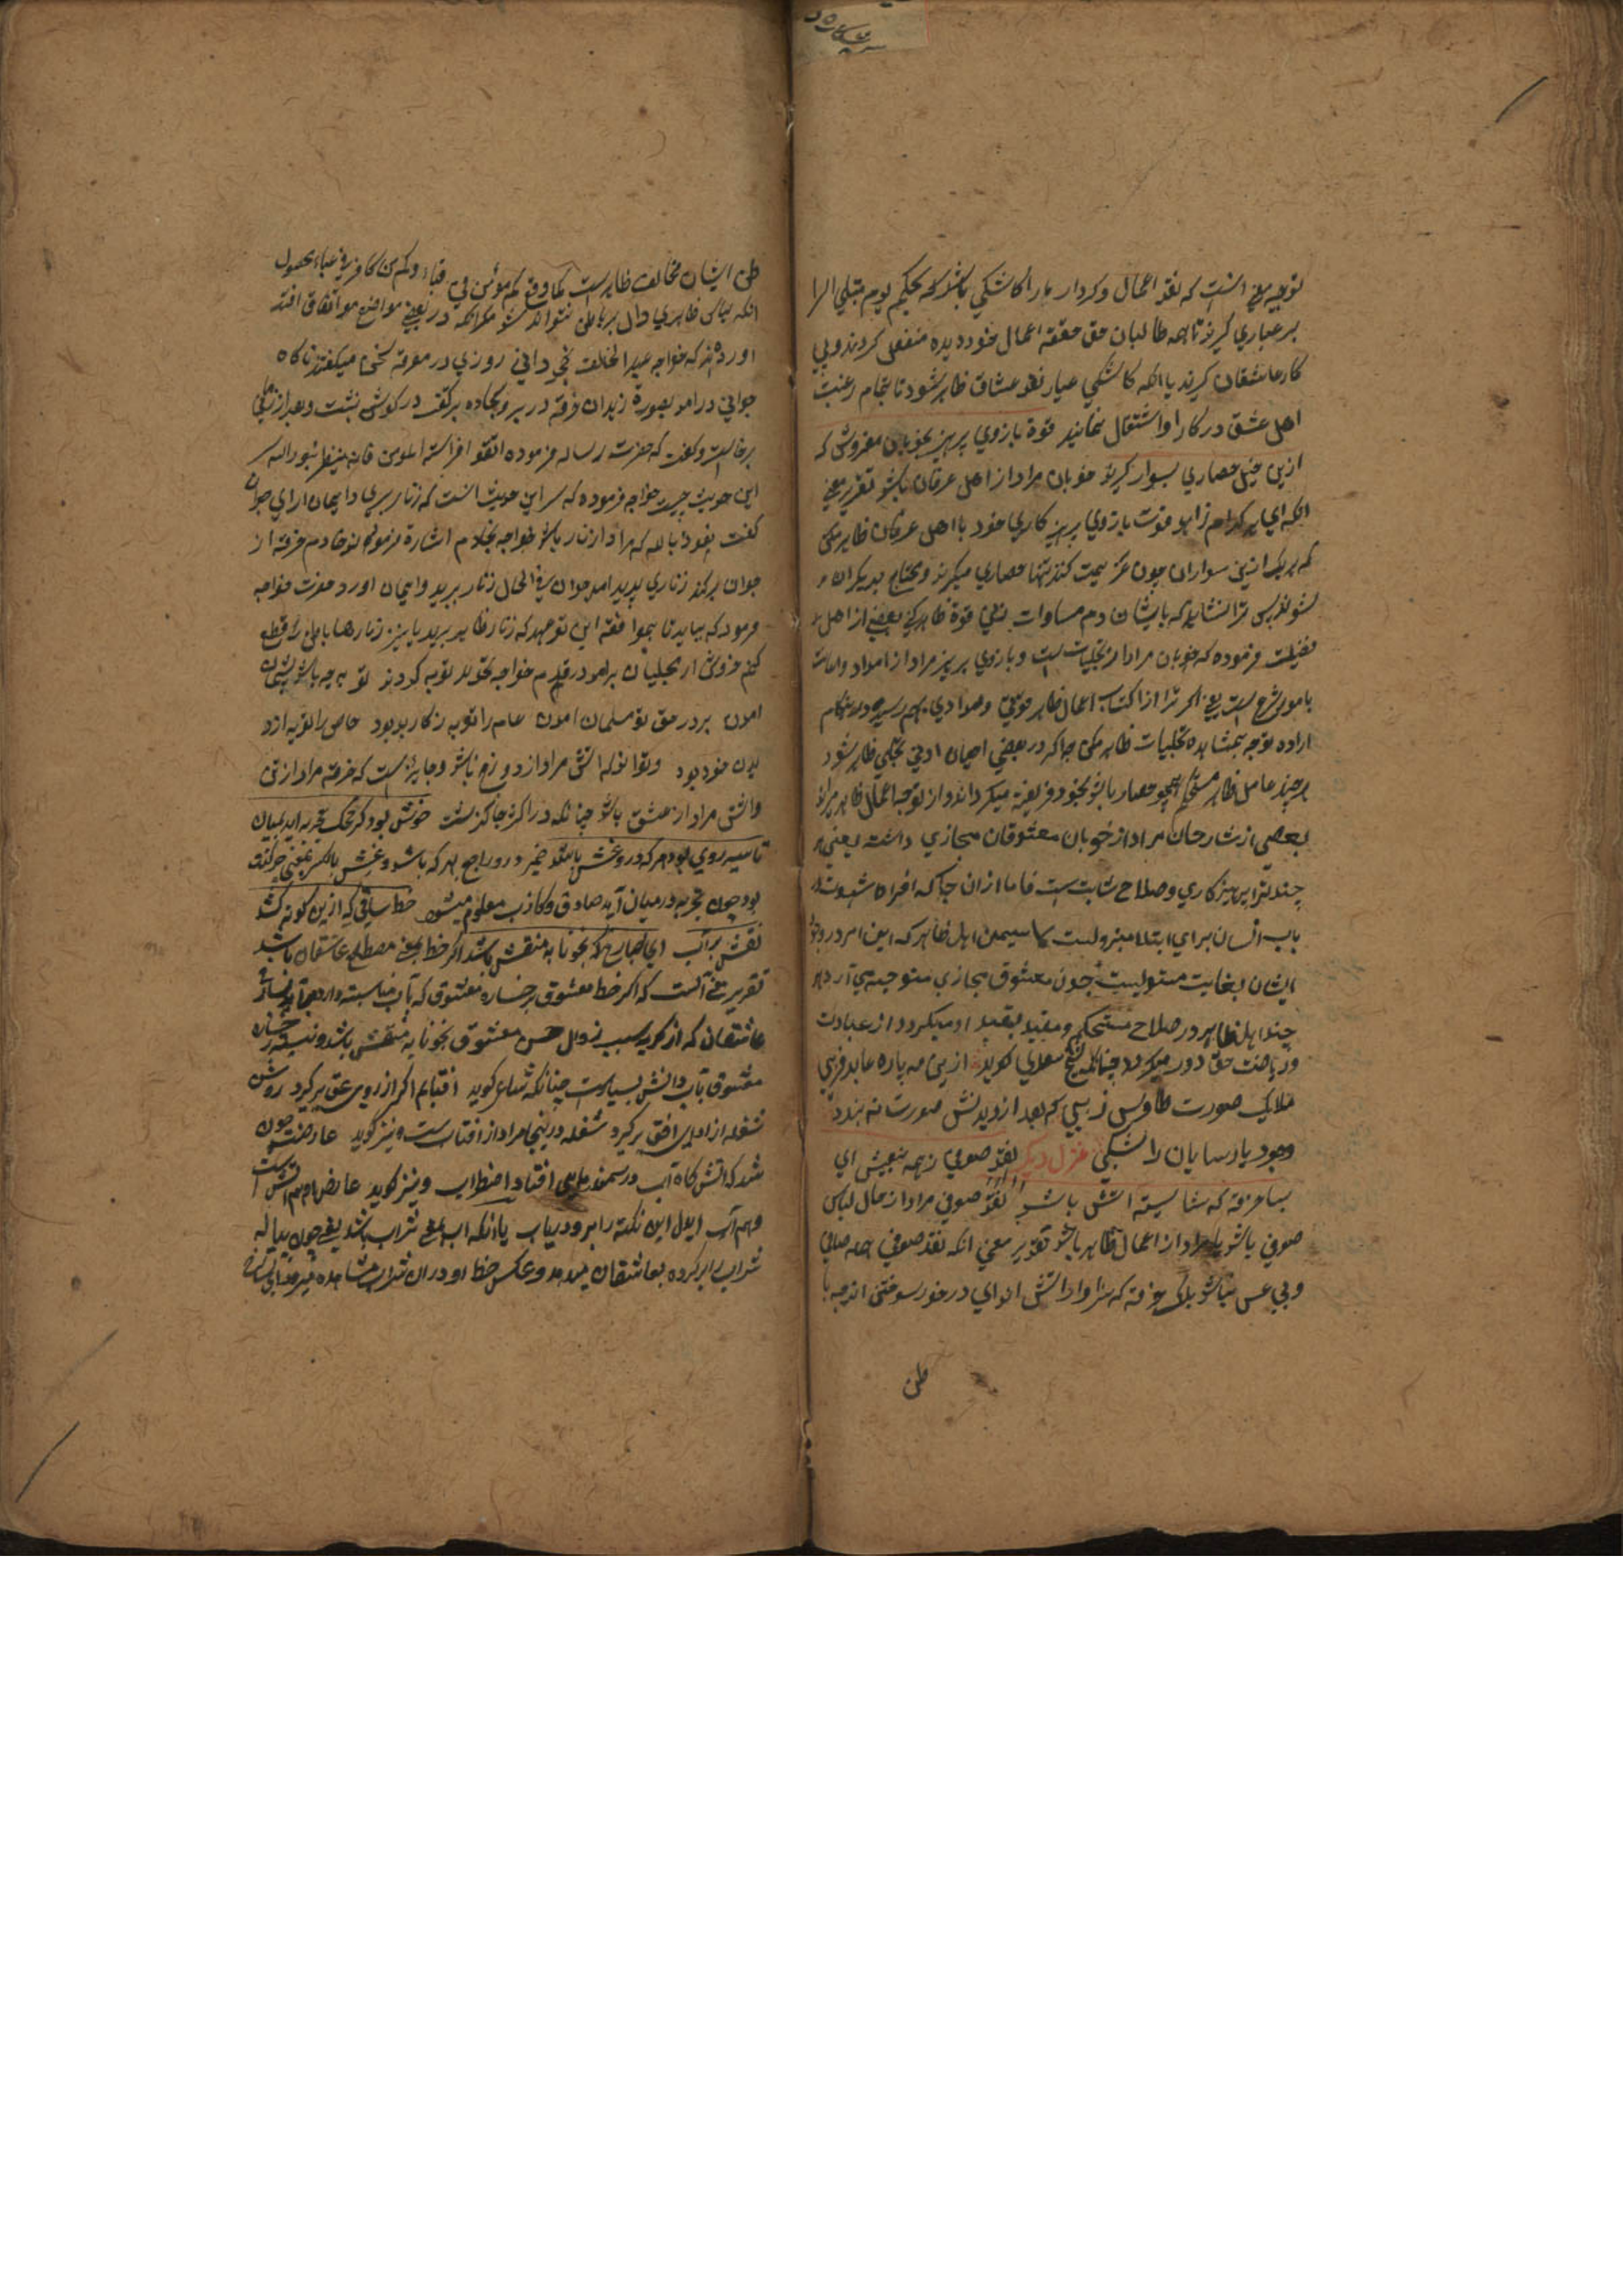 توجیه معنی آنست که نقد اعمال و کردار ما را کاشکی باشد که بحکم یوم تبلی السرا
بر عیاری گیرند تا همه طالبان حق حقیقة اعمال خود دیده منفعل گردند و پی
کار عاشقان گیرند یا آنکه کاشکی عیار نقد عشاق ظاهر شود تا بتمام رغبت
اهل عشق در کار او اشتغال نمایند قوة بازوی پرهیز بخوبان مفروش که
ازین خیل حصاری بسواری گیرند خوبان مراد از اهل عرفان باشد تقریر معنی
آنکه ای زاهد قوت بازوی پرهیز کاری خود با اهل عرفان ظاهر مکن
که هر یک ازین سواران چون عزیمت کند تنها حصاری میگیرند و محتاج بدیگران
نشوند پس ترا نشاید که بایشان دم مساوات بنهی قوة ظاهر کنی بعضی از اهل
فضیلت فرموده که خوبان مراد از تجلیات است و بازوی پرهیز مراد از امداد و اعانت
بامور شرع است یعنی اگر ترا از اکتساب اعمال ظاهر قوتی و موادی بهم رسیده
اراده توجه بمشاهده تجلیات ظاهر مکن چرا که در بعضی احیان ادنی تجلی ظاهر شود
هر چند عامل ظاهر مستحکم همچو حصار باشد بخود فریفته میگرداند و از توجه اعمال ظاهر
بعضی از شارحان مراد از خوبان معشوقان مجازی داشته یعنی هر
چند ترا پرهیز کاری و صلاح ثابت است فاما از آن جا که
باب انسان برای ابتلا منزولیست لا سیما اهل ظاهر که این امر در
ایشان بغایت مستولیست چون معشوق مجازی متوجه می آرد هر
چند اهل ظاهر در صلاح مستحکم و مقید بقید او میگردد از عبادت
و ریاضت حق دور میگردد چنانکه شیخ سعدی گوید ازین مه پاره عابد فریبی
ملایک صورت طاوس زیبی که بعد از دیدنش صورت نه بندد
وجود پارسایان را شکیبی غزل دیگر نقد صوفی نه همه بیغش ای
بسا خرقه که شایسته آتش باشد نقد صوفی مراد از حال لباس
صوفی باشد یا مراد از اعمال ظاهر باشد تقریر معنی آنکه نقد صوفی همه صافی
و بی غش نباشد بلکه خرقه که سزاوار آتش اند ای در خور سوختن اند چه با
طن
طن ایشان مخالف ظاهر است کما وقع کم مؤمن فی قباء و کم من کافر فی عباء بحصول
آنکه لباس ظاهری دال بر باطن نتواند شد مگر آنکه در بعضی مواضع موافق افتد
آورده اند که خواجه عبد الخالق غجدوانی روزی در معرفة سخن میگفتند ناگاه
جوانی در آمد بصورة زاهدان خرقه در بر و سجاده بر کتف در گوشه نشست و بعد از زمانی
برخاست و گفت که حضرت رساله فرموده اتقوا فراسة المؤمن فانه ینظر بنور الله سر
این حدیث چیست خواجه فرموده که سر این حدیث آنست که زنار ببری و ایمان آری جوان
گفت نعوذ بالله که مرا زنار باشد خواجه بخادم اشارة فرمود خادم خرقه از
جوان برکند زناری پدید آمد جوان فی الحال زنار ببرید و ایمان آورد حضرت خواجه
فرمود که بیاید تا بموافقة این نو عهد که زنار ظاهر برید ما نیز زنار های باطن را قطع
کنیم خروش از مجلسیان برآمد در قدم خواجه بتجدید توبه کردند تو به چه باشد پشیمان
آمدن بر در حق نو مسلمان آمدن عام را توبه ز کار بد بود خاص را توبه از
دیدن خود بود و تواند که آتش مراد از دوزخ باشد و جایز است که خرقه مراد از تن
و آتش مراد از عشق باشد چنانکه در اکثر جا گذشت خوش بود گر محک تجربه آید بمیان
تا سیه روی شود هر که درو غش باشد ضمیر درو راجع بهر که باشد و غش بالکسر بمعنی چرکینی
بود چون تجربه در میان آید صادق و کاذب معلوم میشود خط ساقی گر ازین گونه کشد
نقش بر آب ای بسا رخ که بخونابه منقش باشد اگر خط بمعنی مصطلح عاشقان باشد
تقریر معنی آنست که اگر خط معشوق بر رخساره معشوق که بآب مناسبت دارد
عاشقان که از گریه بسبب زوال حسن معشوق بخونابه منقش باشد و تشبیه رخساره
معشوق بآب و آتش بسیار است چنانکه شاعر گوید آفتابم اگر از روی عرق برگیرد روشن
شعله از افق برگیرد شعله درینجا مراد از آفتاب است و نیز گوید عارضت چون
شد گه آتش گاه آب در سمندر ماهی افتاد اضطراب و نیز گوید عارضم هم آتش است
و هم آب ای دل این نکته را برو دریاب یا آنکه آب بمعنی شراب باشد یعنی چون پیاله
شراب را پر کرده بعاشقان میدهد و عکس خط او در آن شراب مشاهده میرود